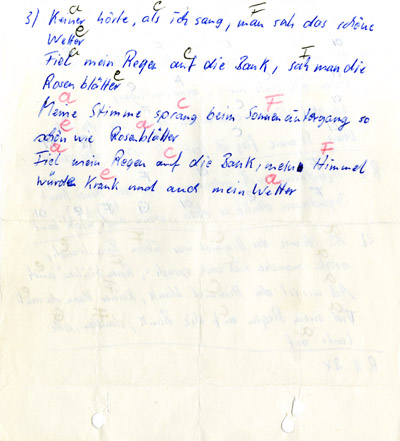 a C F
3) Keiner hörte, als ich sang, man sah das schöne
e
Wetter
a C F
Fiel mein Regen auf die Bank, sah man die
e
Rosenblätter
a C F
Meine Stimme sprang beim Sonnenuntergang so
e a
schön wie Rosenblätter
a C F
Fiel mein Regen auf die Bank, mein Himmel
e a
würde Krank und auch mein Wetter